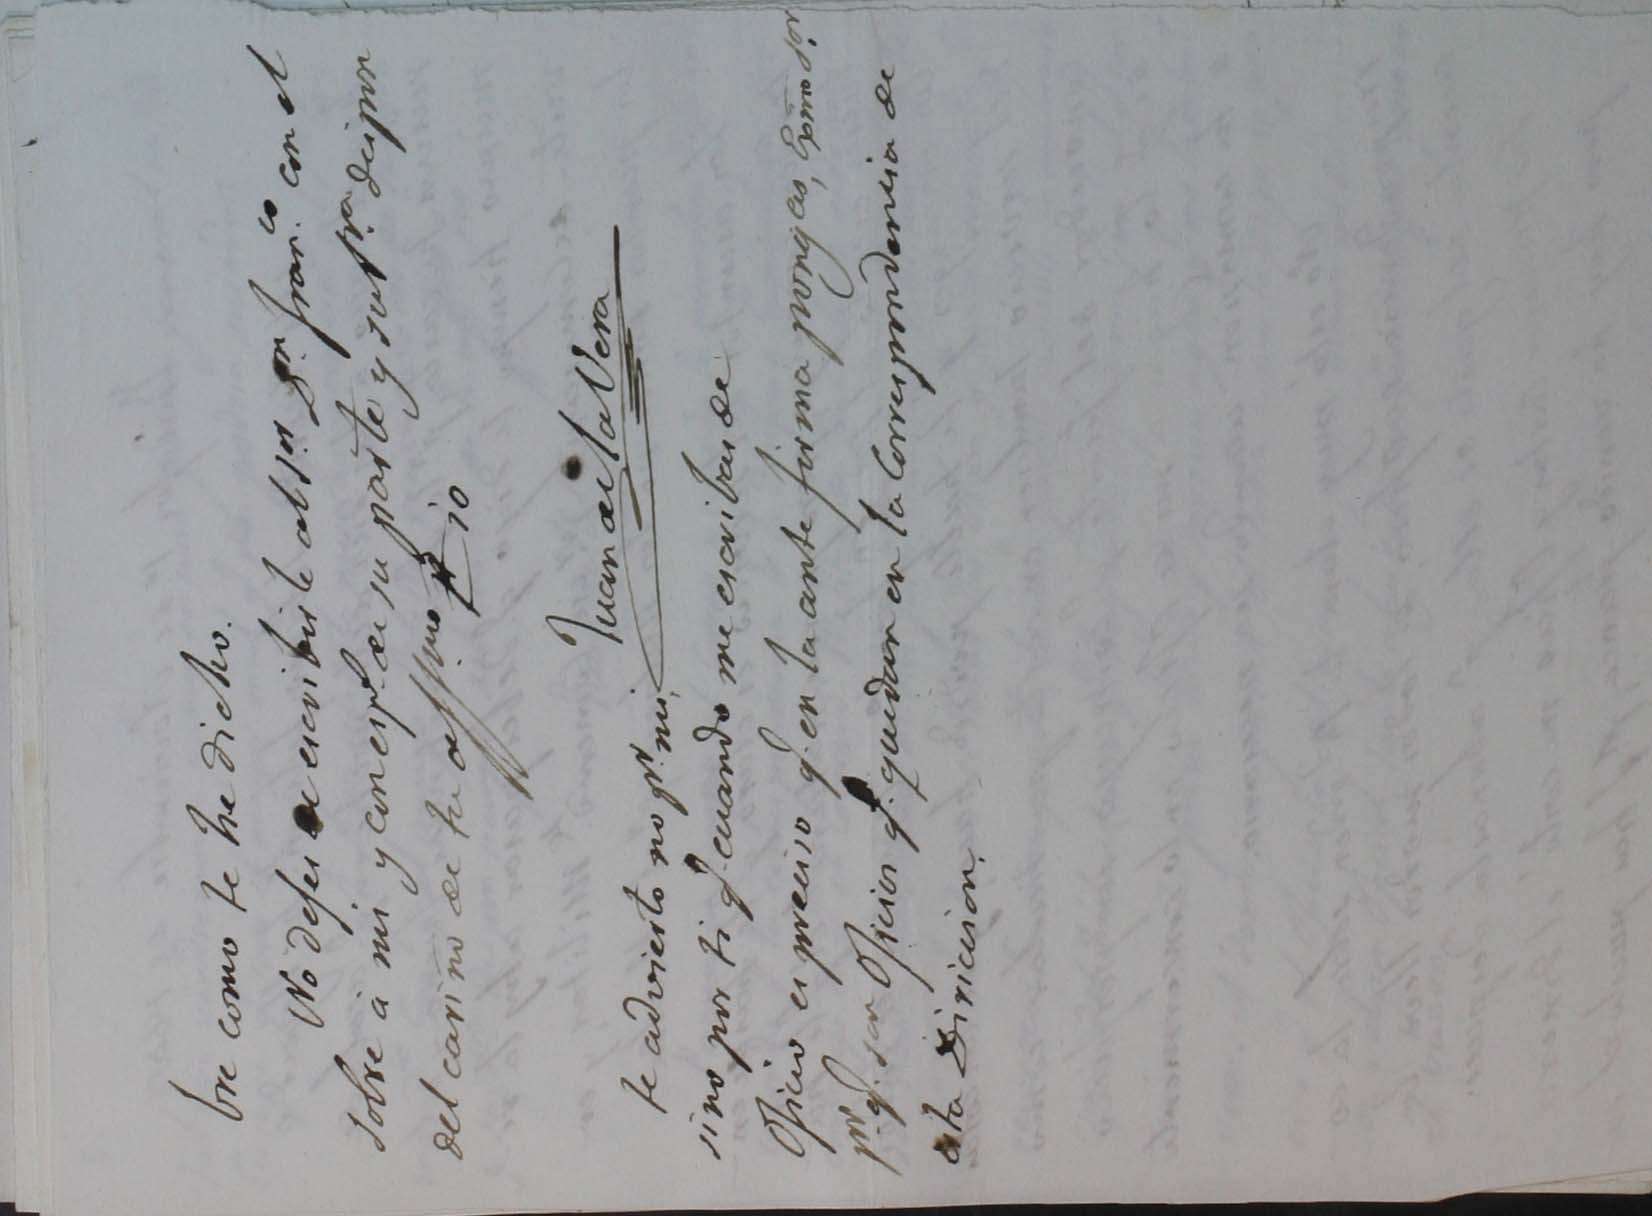 bre como te he dicho.
No dejes de escribirle al Sor. Dn. Franco. con el
sobre á mi y con espl. de su parte y sus pra. disipon
del cariño de tu affmo. Tio
Juan de la Vera
te advierto no pr. mi,
sino por ti q. cuando me escribas de
Oficio es preciso q. en la ante firma pongas, Exmo Sor
pr. q. son Oficios q. quedan en la Correspondencia de
esta Direccion.